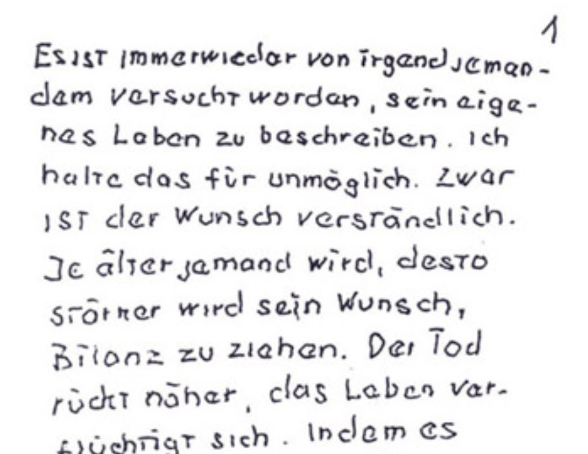 1
Es ist immer wieder von irgend jeman-
dem versucht worden, sein eige-
nes Leben zu beschreiben. Ich
halte das für unmöglich. Zwar
ist der Wunsch verständlich.
Je älter jemand wird, desto
stärker wird sein Wunsch,
Bilanz zu ziehen. Der Tod
rückt näher, das Leben ver-
flüchtigt sich. Indem es